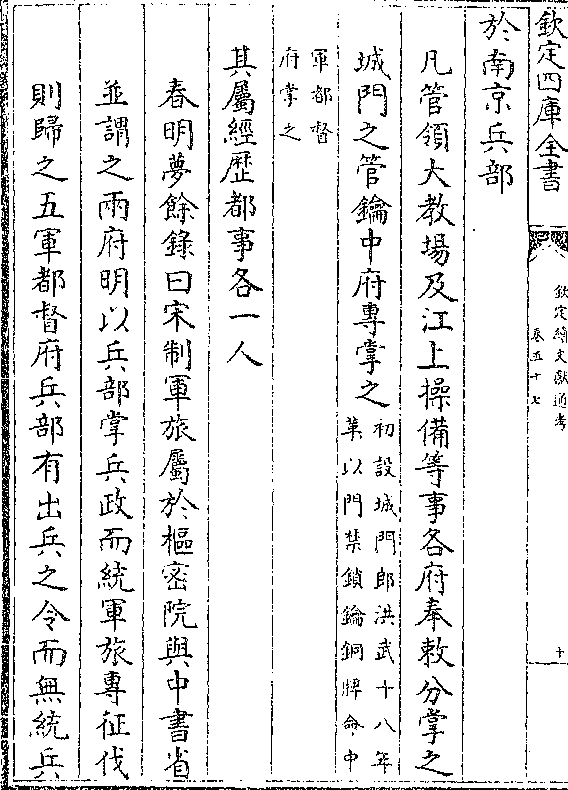 欽定四庫全書
欽定續文獻通考
卷五十七
十
於南京兵部
凡管領大教場及江上操備等事各府奉敕分掌之
城門之管鑰中府專掌之
初設城門郎洪武十八年
革以門禁鎖鑰銅牌命中
軍都督
府掌之
其屬經歷都事各一人
春明夢餘錄曰宋制軍旅屬於樞密院與中書省
並謂之兩府明以兵部掌兵政而統軍旅專征伐
則歸之五軍都督府兵部有出兵之令而無統兵